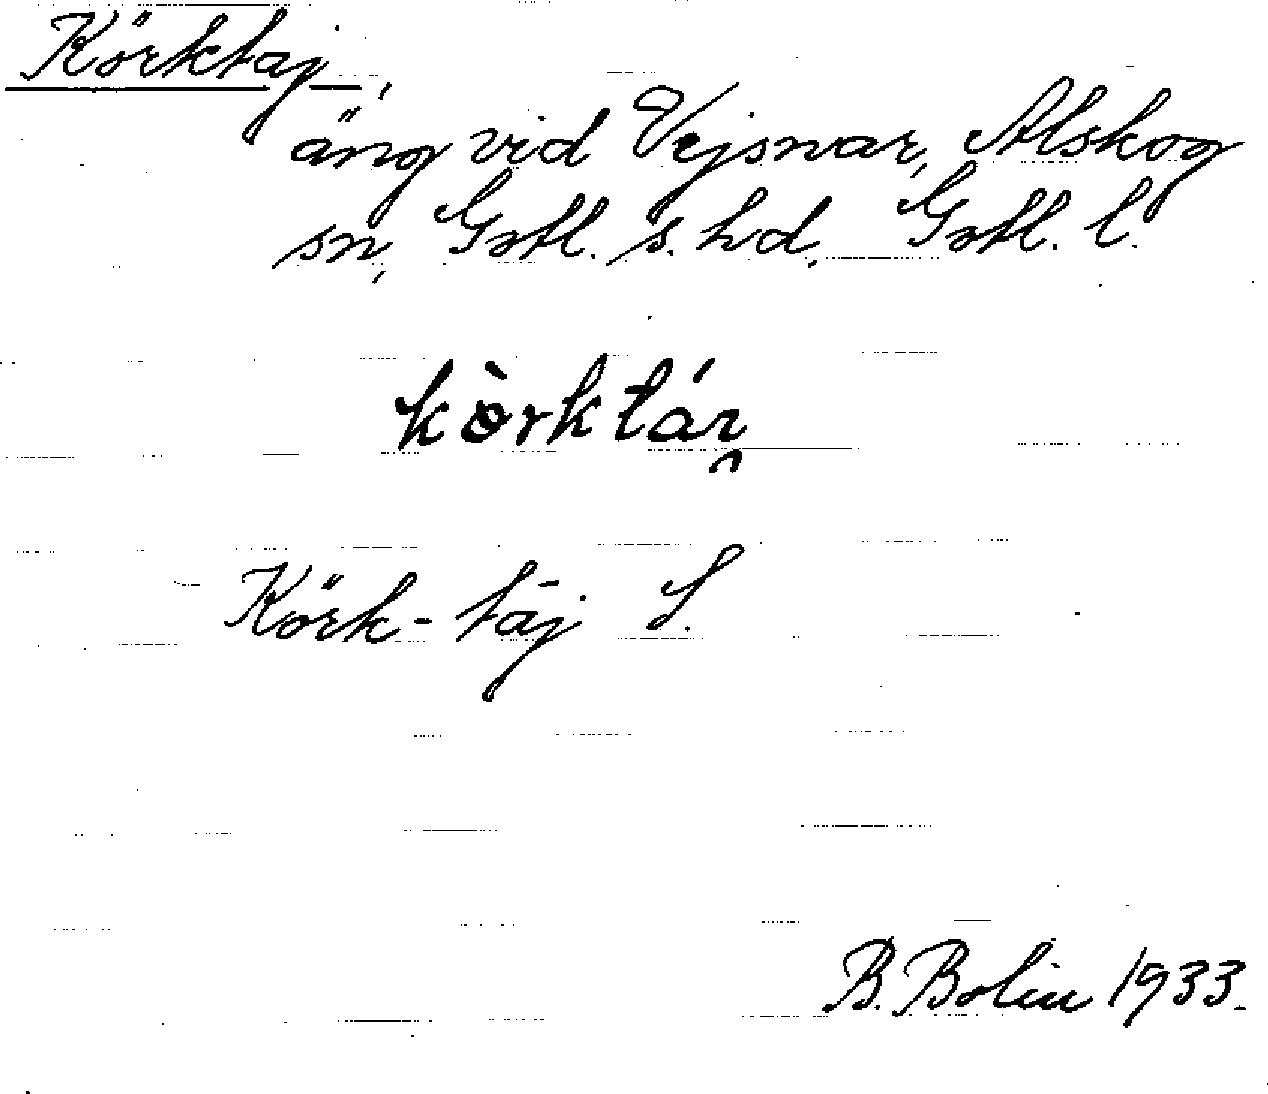 Körktaj,
äng vid Vejsnar, Alskog
sn, Gotl. s. hd. Gotl. l.
Körk-täj S.
B. Bolin 1933.